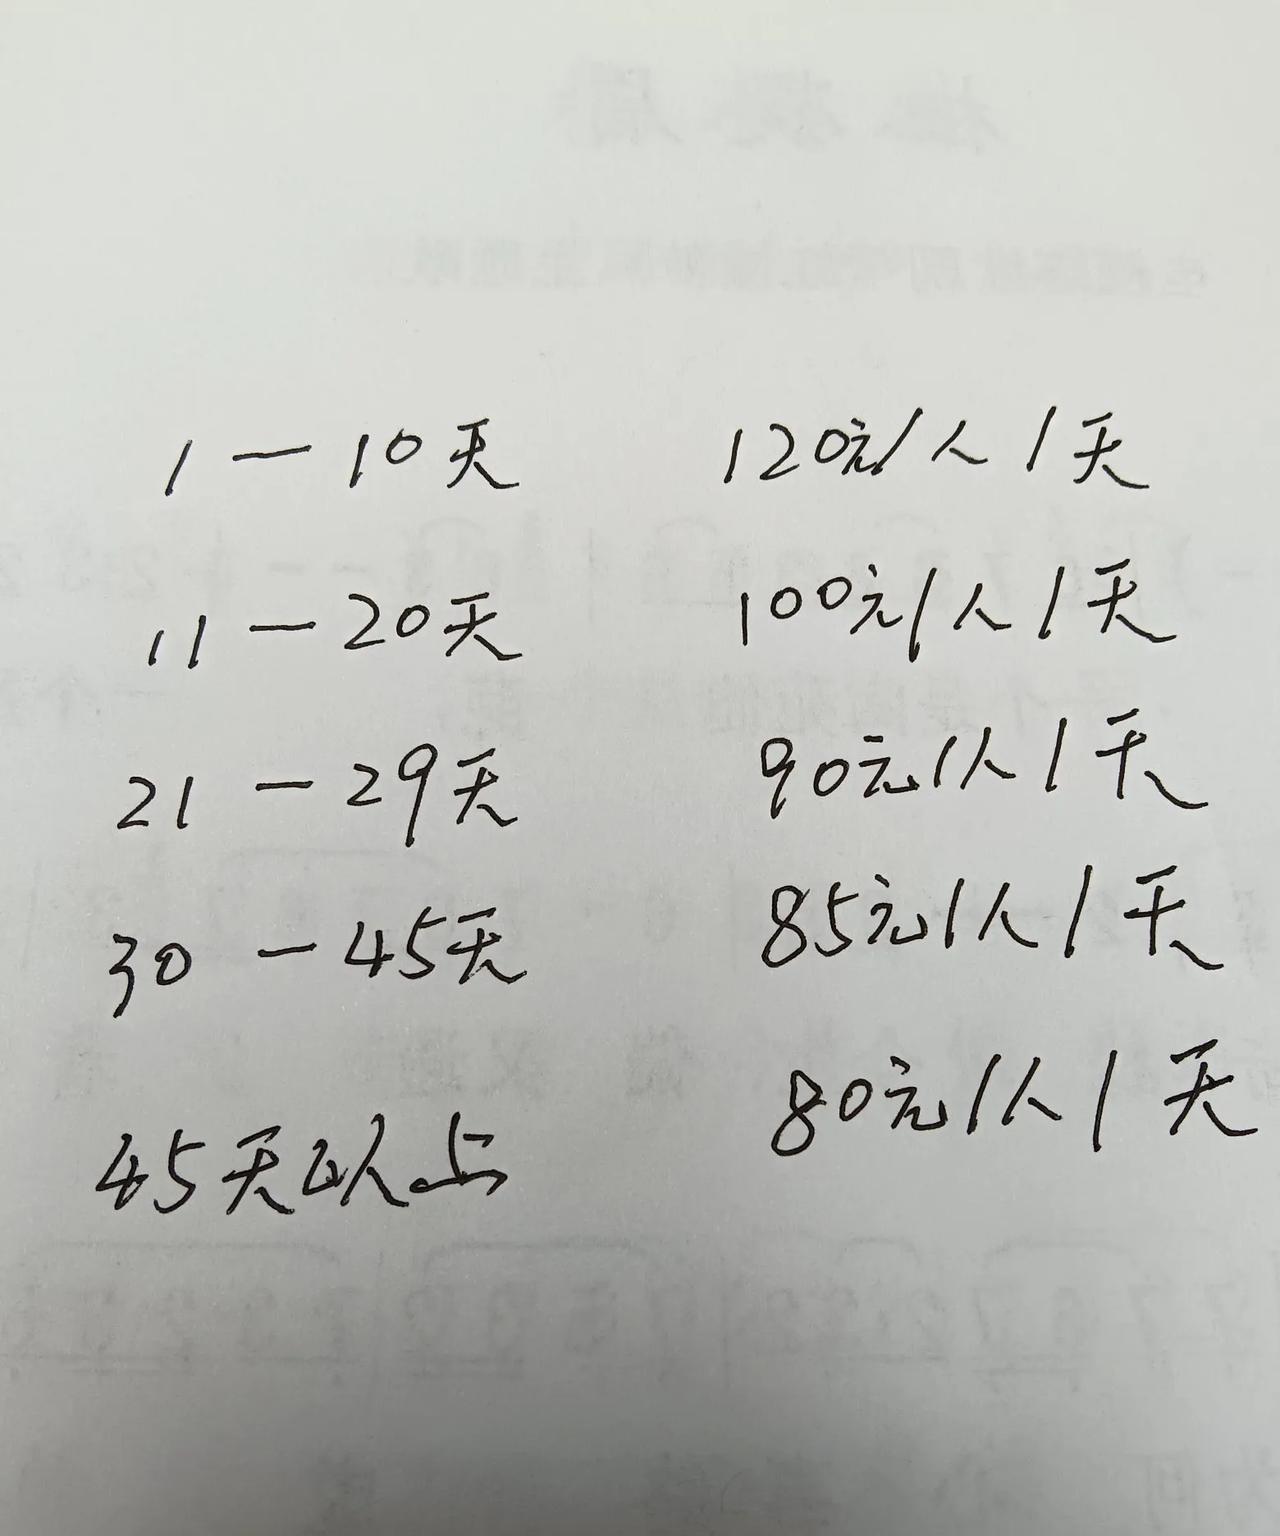 1一10天 120元/人/天
11一20天 100元/人/天
21一29天 90元/人/天
30一45天 85元/人/天
45天以上 80元/人/天